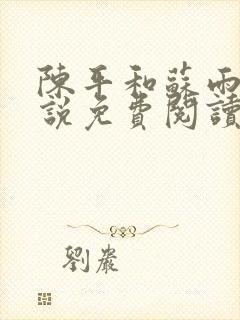 陳平和蘇雨
說免費閱讀
劉巖